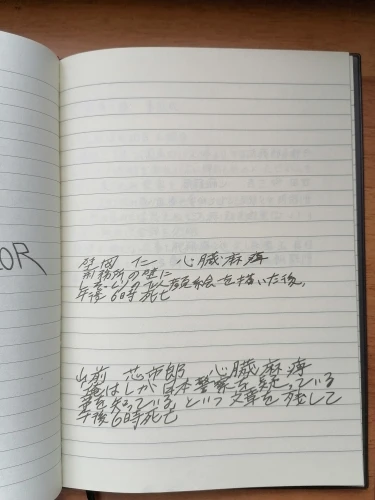 OR
岡 仁 心臓麻痺
刑務所の壁に
の似顔絵を描いた後、
午後6時死亡
山前 芯市郎 心臓麻痺
俺はLが日本警察を疑っている
事を知っている。という文章を残して
午後6時死亡